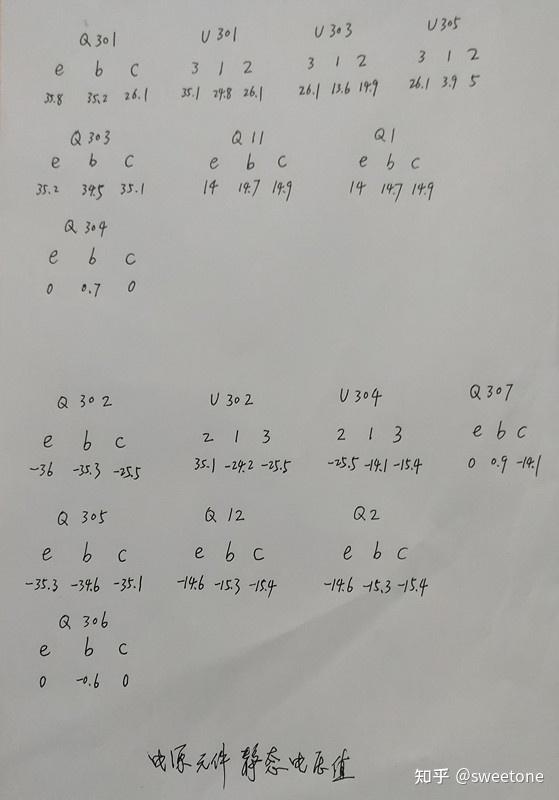 Q301 U301 U303 U305
e b c 3 1 2 3 1 2 3 1 2
35.8 35.2 26.1 35.1 24.8 26.1 26.1 13.6 14.9 26.1 3.9 5
Q303 Q11 Q1
e b c e b c e b c
35.2 34.5 35.1 14 14.7 14.9 14 14.7 14.9
Q304
e b c
0 0.7 0
Q302 U302 U304 Q307
e b c 2 1 3 2 1 3 e b c
-36 -35.3 -25.5 35.1 -24.2 -25.5 -25.5 -14.1 -15.4 0 0.9 -14.1
Q305 Q12 Q2
e b c e b c e b c
-35.3 -34.6 -35.1 -14.6 -15.3 -15.4 -14.6 -15.3 -15.4
Q306
e b c
0 -0.6 0
电源元件静态电压值
知乎 @sweetone